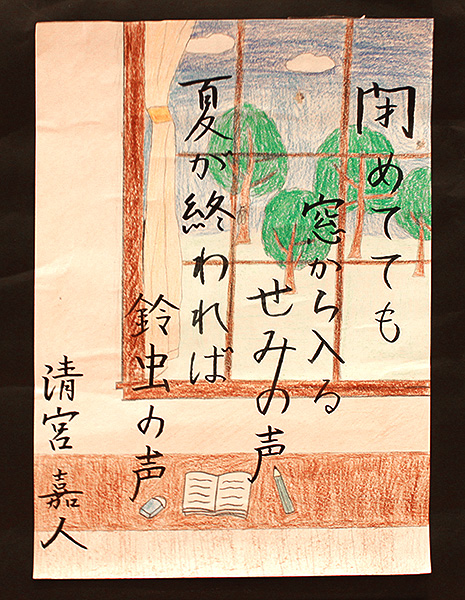 閉めてても
窓から入る
せみの声
夏が終われば
鈴虫の声
清宮嘉人